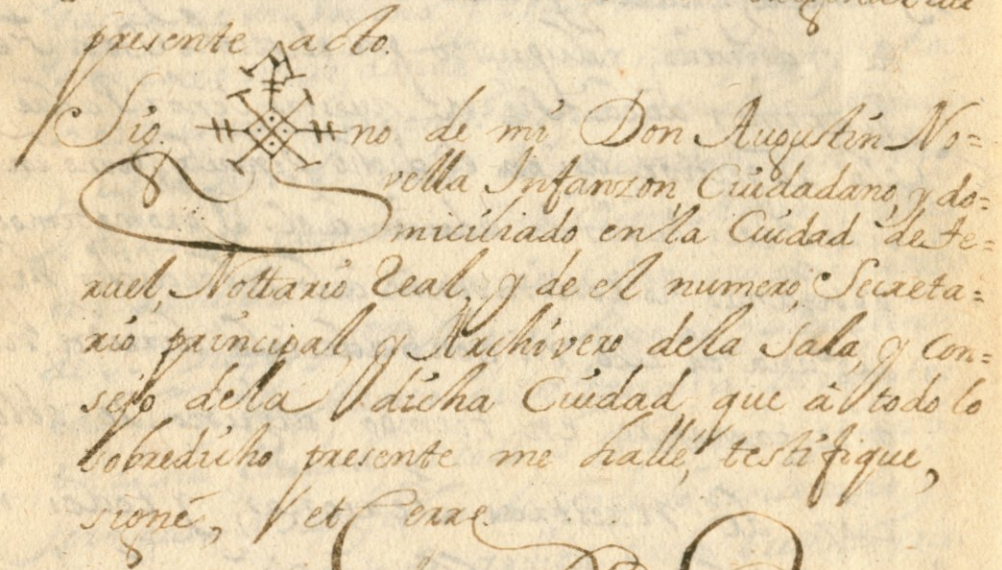 presente acto.
Sig no de mi Don Augustin No=
vella Infanzon, Ciudadano, y do=
miciliado en la Ciudad de Te=
ruel, Nottario Real, y de el numero, Secreta=
rio principal y Archivero dela Sala, y con=
sejo dela dicha Ciudad, que â todo lo
sobredicho presente me hallê, testifique,
signê, et Cerre.